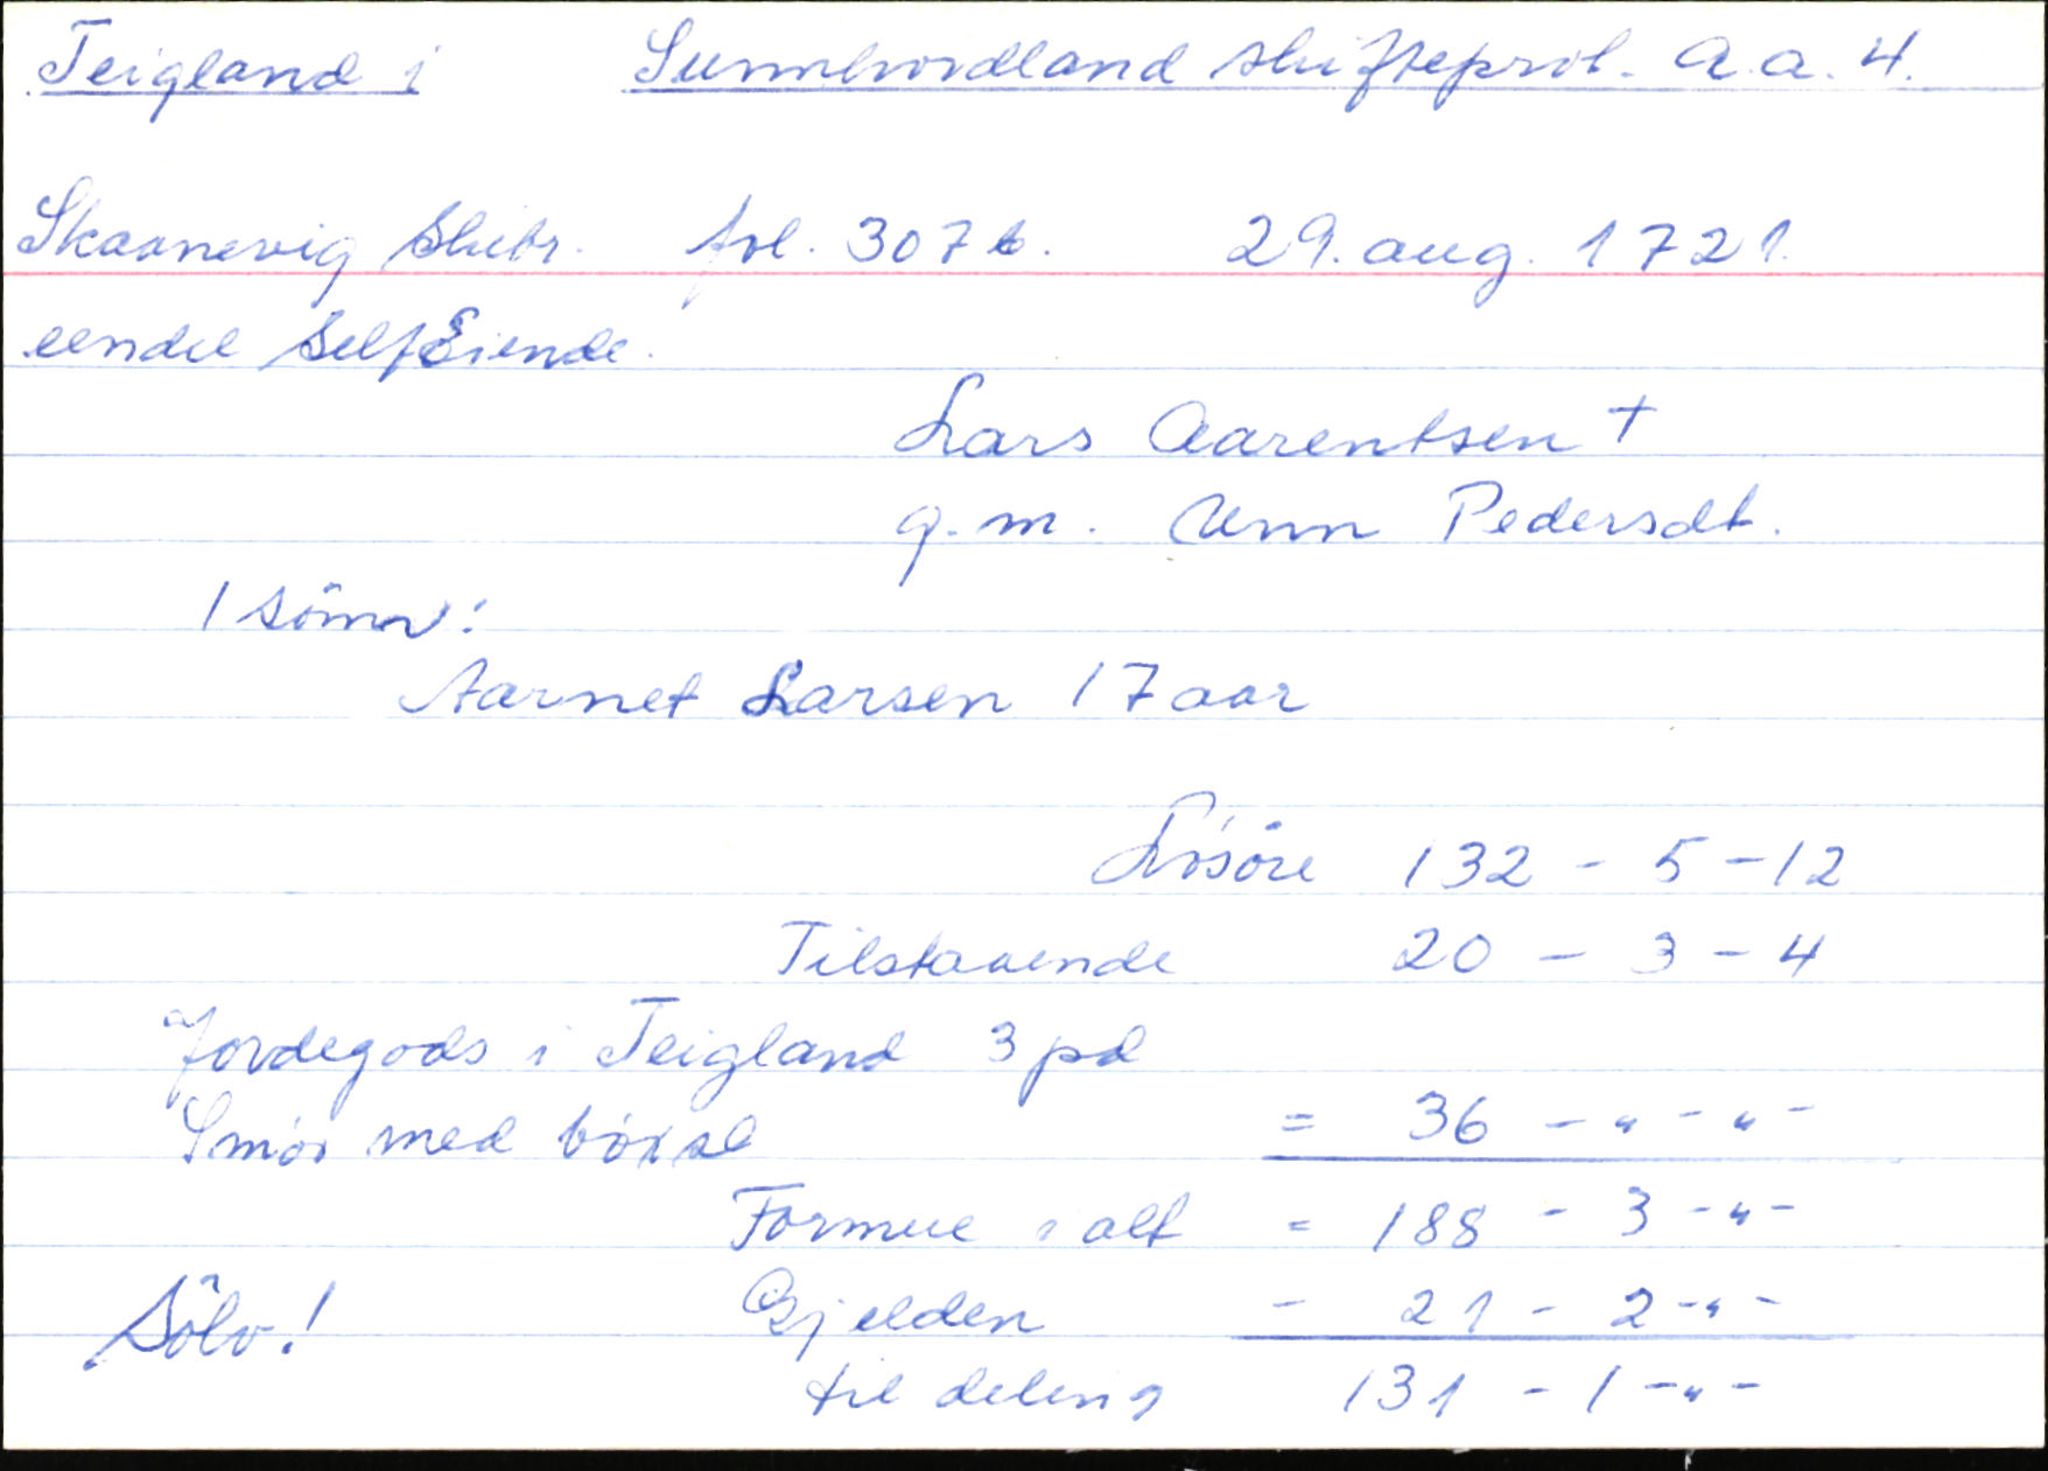 Teigland i Sunnhordland skifteprot. A.a. 4.
Skaanevig Skibr. fol. 307b. 29. aug. 1721.
eendel SelfEiende.
Lars Aarentsen †
g.m. Unn Pedersdt.
1 sönn:
Aarnet Larsen 17 aar
Lösöre 132 - 5 - 12
Tilstaaende 20 - 3 - 4
Jordegods i Teigland 3 pd
Smör med böxel = 36 - " - " -
Formue i alt = 188 - 3 - " -
Gjelden - 21 - 2 - " -
Sölv! til deling 131 - 1 - " -